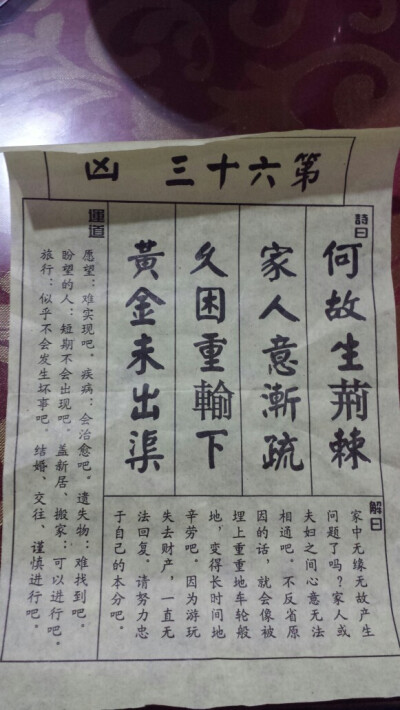 第六十三 凶
詩曰
何故生荊棘
家人意漸疏
久困重輸下
黃金未出渠
解曰
家中无缘无故产生
问题了吗？家人或
夫妇之间心意无法
相通吧。不反省原
因的话，就会像被
埋上重重地车轮般
地，变得长时间地
辛劳吧。因为游玩
失去财产，一直无
法回复。请努力忠
于自己的本分吧。
運道
愿望：难实现吧。疾病：会治愈吧。遗失物：难找到吧。
盼望的人：短期不会出现吧。盖新居、搬家：可以进行吧。
旅行：似乎不会发生坏事吧。结婚、交往、谨慎进行吧。